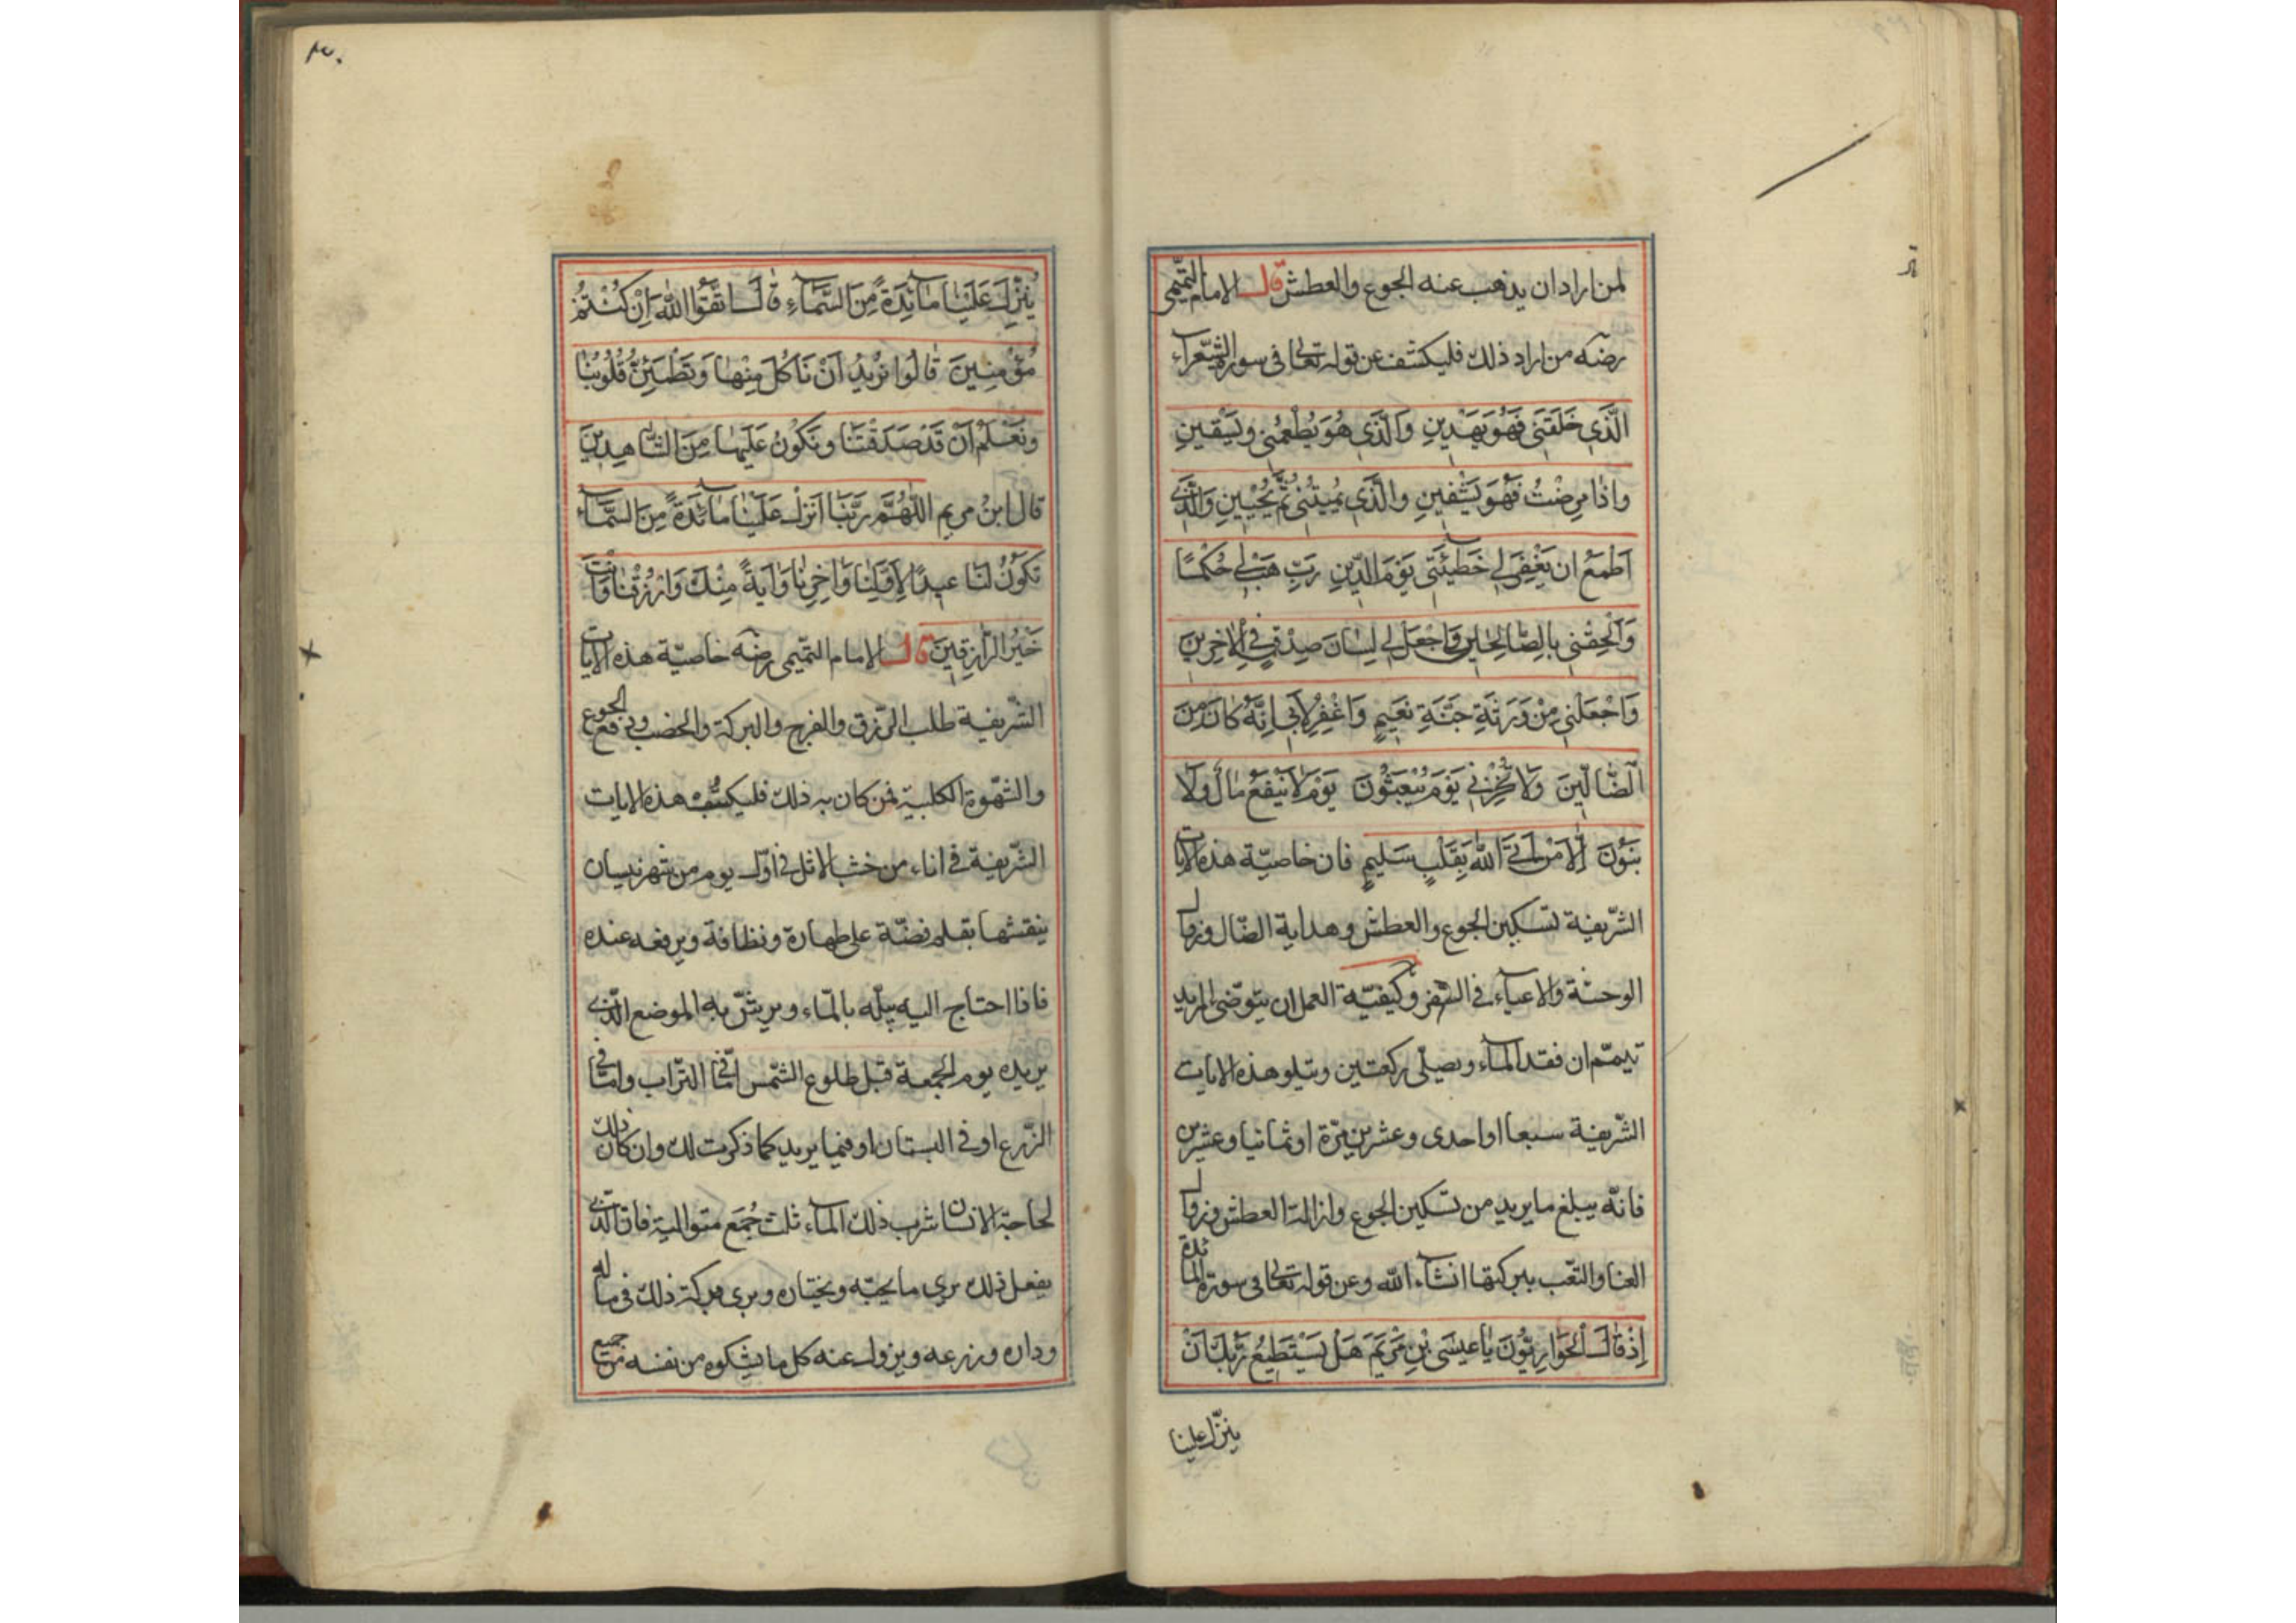 لمن اراد ان يذهب عنه الجوع والعطش قال الامام التميمى
رضه من اراد ذلك فليكشف عن قوله تعالى فى سورة الشعراء
الَّذى خَلَقَنى فَهُوَ يَهْدينِ وَالَّذى هُوَ يُطْعِمُنى وَيَسْقينِ
وَاِذا مَرِضْتُ فَهُوَ يَشْفينِ وَالَّذى يُميتُنى ثُمَّ يُحْيينِ وَالَّذى
اَطْمَعُ ان يَغْفِرَ لى خَطيئَتى يَوْمَ الدّينِ رَبِّ هَبْ لى حُكْمًا
وَاَلْحِقْنى بِالصّالِحينَ وَاجْعَلْ لى لِسانَ صِدْقٍ فِى الْاٰخِرينَ
وَاجْعَلْنى مِنْ وَرَثَةِ جَنَّةِ نَعيمٍ وَاغْفِرْ لِاَبى اِنَّهُ كانَ مِنَ
الضّالّينَ وَلا تُخْزِنى يَوْمَ يُبْعَثُونَ يَوْمَ لا يَنْفَعُ مالٌ وَلا
بَنُونَ اِلّا مَنْ اَتَى اللهَ بِقَلْبٍ سَليمٍ فان خاصيّة هذه الايات
الشّريفة تسكين الجوع والعطش وهداية الضّال وزوال
الوحشة والاعياء فى السّفر وكيفيّة العمل ان يتوضّى المريد
تيمّم ان فقد الماء ويصلّى ركعتين ويتلو هذه الايات
الشّريفة سبعا او احدى وعشرين مرّة او ثمانيا وعشرين
فانّه يبلغ ما يريد من تسكين الجوع وازالة العطش وزوال
العنا والتّعب ببركتها انشاء الله وعن قوله تعالى فى سورة المائدة
اِذْ قالَ الْحَوارِيُّونَ يا عيسَى بْنِ مَرْيَمَ هَلْ يَسْتَطيعُ رَبُّكَ اَنْ
ينزّل علينا
٣٠
يُنَزِّلَ عَلَيْنا مائِدَةً مِنَ السَّماءِ قالَ اتَّقُوا اللهَ اِنْ كُنْتُمْ
مُؤْمِنينَ قالُوا نُريدُ اَنْ نَاْكُلَ مِنْها وَتَطْمَئِنَّ قُلُوبُنا
وَنَعْلَمَ اَنْ قَدْ صَدَقْتَنا وَنَكُونَ عَلَيْها مِنَ الشّاهِدينَ
قال ابنُ مريم اللّٰهُمَّ رَبَّنا اَنْزِلْ عَلَيْنا مائِدَةً مِنَ السَّماء
تَكُونُ لَنا عيدًا لِاَوَّلِنا وَاٰخِرِنا وَاٰيَةً مِنْكَ وَارْزُقْنا وَاَنْتَ
خَيْرُ الرّازِقينَ قال الامام التميمى رضه خاصيّة هذه الايات
الشّريفة طلب الرّزق والفرج والبركة والخصب ودفع الجوع
والشّهوة الكلبية فمن كان به ذلك فليكتب هذه الايات
الشّريفة فى اناء من خشب الاثل فى اوّل يوم من شهر نيسان
ينقشها بقلم فضّة على طهارة ونظافة ويرفعه عنده
فاذا احتاج اليه يبلّه بالمّاء ويرشّ به الموضع الّذى
يريده يوم الجمعة قبل طلوع الشّمس امّا فى التّراب وامّا فى
الزّرع او فى البستان او فيما يريد كما ذكرت لك وان كان ذلك
لحاجة الانسان شرب ذلك الماء ثلث جُمَع متوالية فان الّذى
يفعل ذلك يرى ما يحبّه ويختاره ويرى بركة ذلك فى ماله
وداره وزرعه ويزول عنه كل ما يشكوه من نفسه من جميع